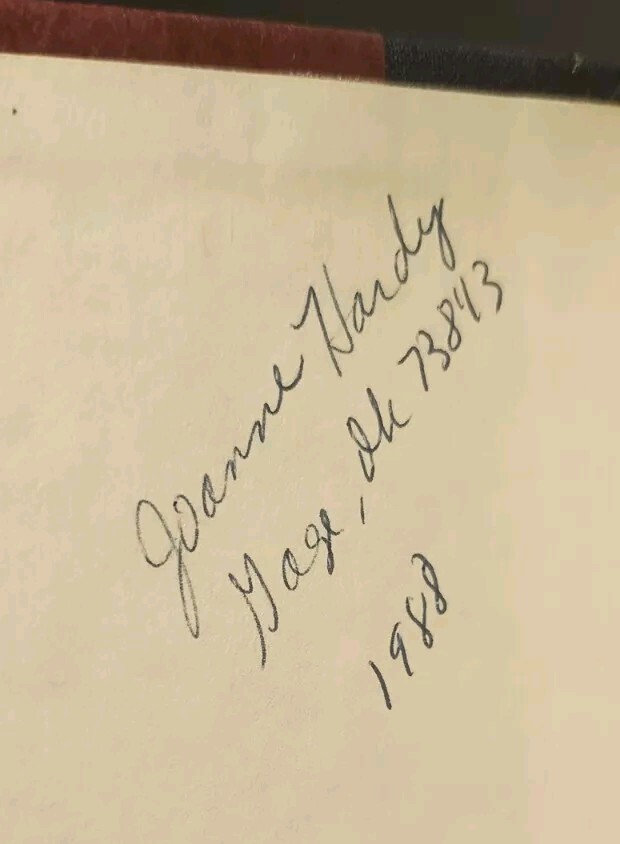 Joanne Hardy
Gage, Ok 73843
1988